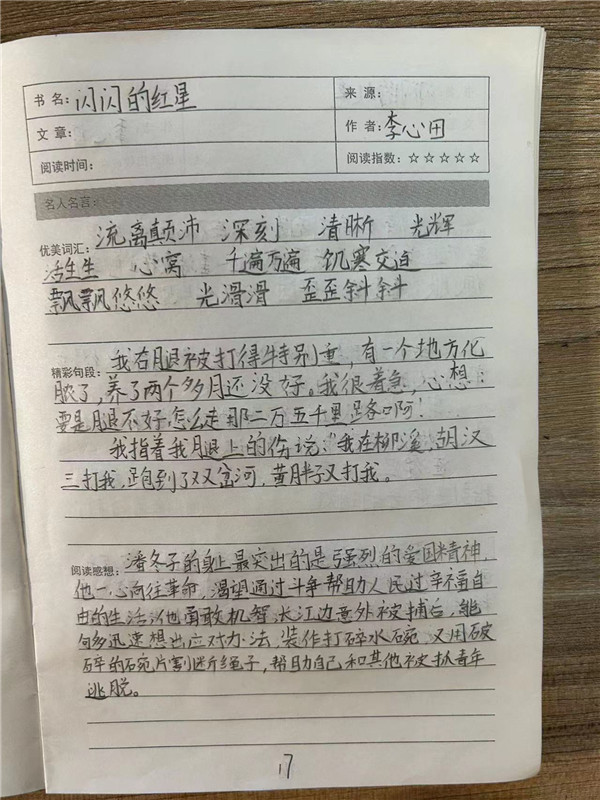 书名：闪闪的红星 来源：
文章： 作者：李心田
阅读时间： 阅读指数：☆☆☆☆☆
名人名言：
优美词汇：流离颠沛 深刻 清晰 光辉
活生生 心窝 千遍万遍 饥寒交迫
飘飘悠悠 光滑滑 歪歪斜斜
精彩句段：我右腿被打得特别重，有一个地方化
脓了，养了两个多月还没好。我很着急，心想：
要是腿不好怎么走那二万五千里路啊！
我指着我腿上的伤说：“我在柳溪，胡汉
三打我，跑到了双岔河，黄胖子又打我。
阅读感想：潘冬子的身上最突出的是强烈的爱国精神，
他一心向往革命，渴望通过斗争帮助人民过幸福自
由的生活；他勇敢机智，长江边意外被捕后，能
够迅速想出应对办法，装作打碎水碗，又用破
碎的碗片割断绳子，帮助自己和其他被抓青年
逃脱。
17